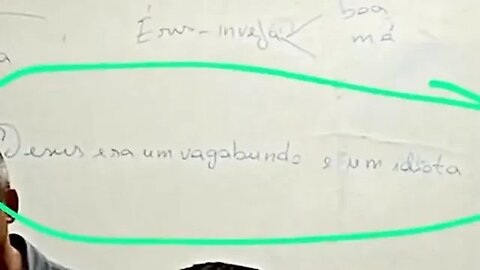 Érus-inveja
boa
má
a
Jesus era um vagabundo e um idiota